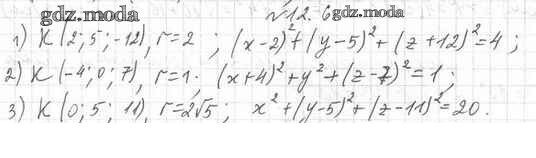 gdz.moda №12.6 gdz.moda
1) K (2; 5; -12), r=2 ; (x-2)²+(y-5)²+(z+12)²=4 ;
2) K (-4; 0; 7), r=1. (x+4)²+y²+(z-7)²=1 ;
3) K (0; 5; 11), r=2√5 ; x²+(y-5)²+(z-11)²=20.